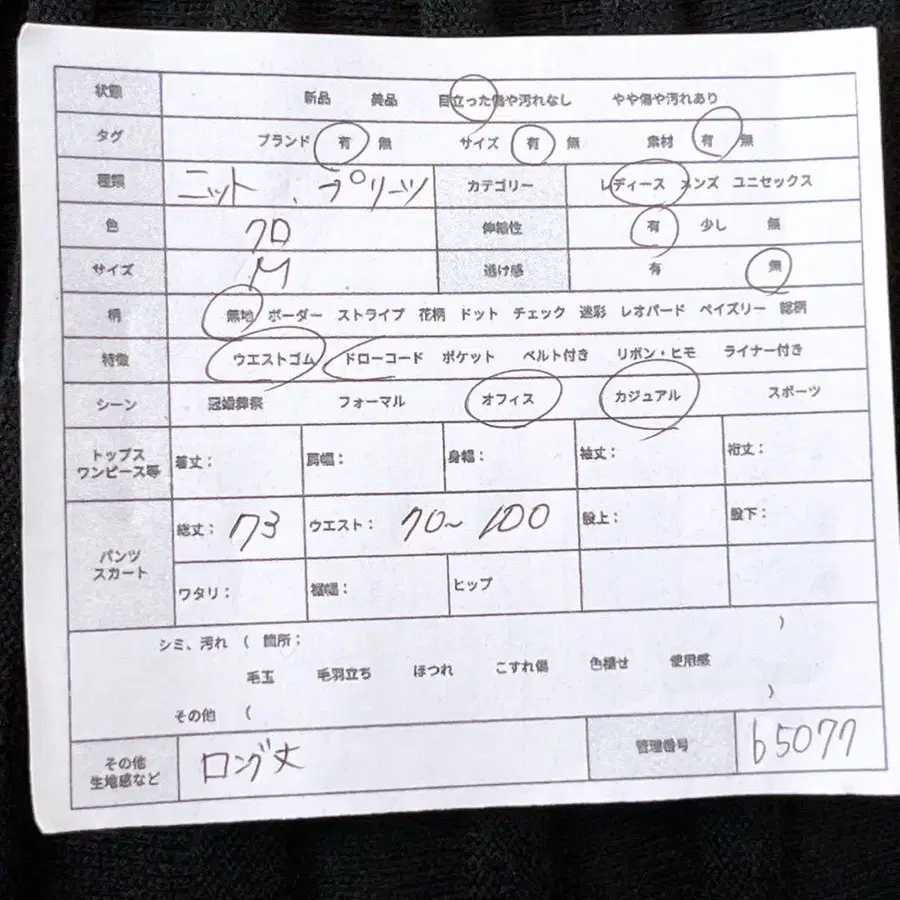 状態 新品 美品 目立った傷や汚れなし やや傷や汚れあり
タグ ブランド 有 無 サイズ 有 無 素材 有 無
種類 ニット、プリーツ カテゴリー レディース メンズ ユニセックス
色 クロ 伸縮性 有 少し 無
サイズ M 透け感 有 無
柄 無地 ボーダー ストライプ 花柄 ドット チェック 迷彩 レオパード ペイズリー 総柄
特徴 ウエストゴム ドローコード ポケット ベルト付き リボン・ヒモ ライナー付き
シーン 冠婚葬祭 フォーマル オフィス カジュアル スポーツ
トップス
ワンピース等 着丈： 肩幅： 身幅： 袖丈： 裄丈：
パンツ
スカート
総丈：73 ウエスト：70~100 股上： 股下：
ワタリ： 裾幅： ヒップ
シミ、汚れ （ 箇所； ）
毛玉 毛羽立ち ほつれ こすれ傷 色褪せ 使用感
その他 （ ）
その他
生地感など ロング丈 管理番号 65077